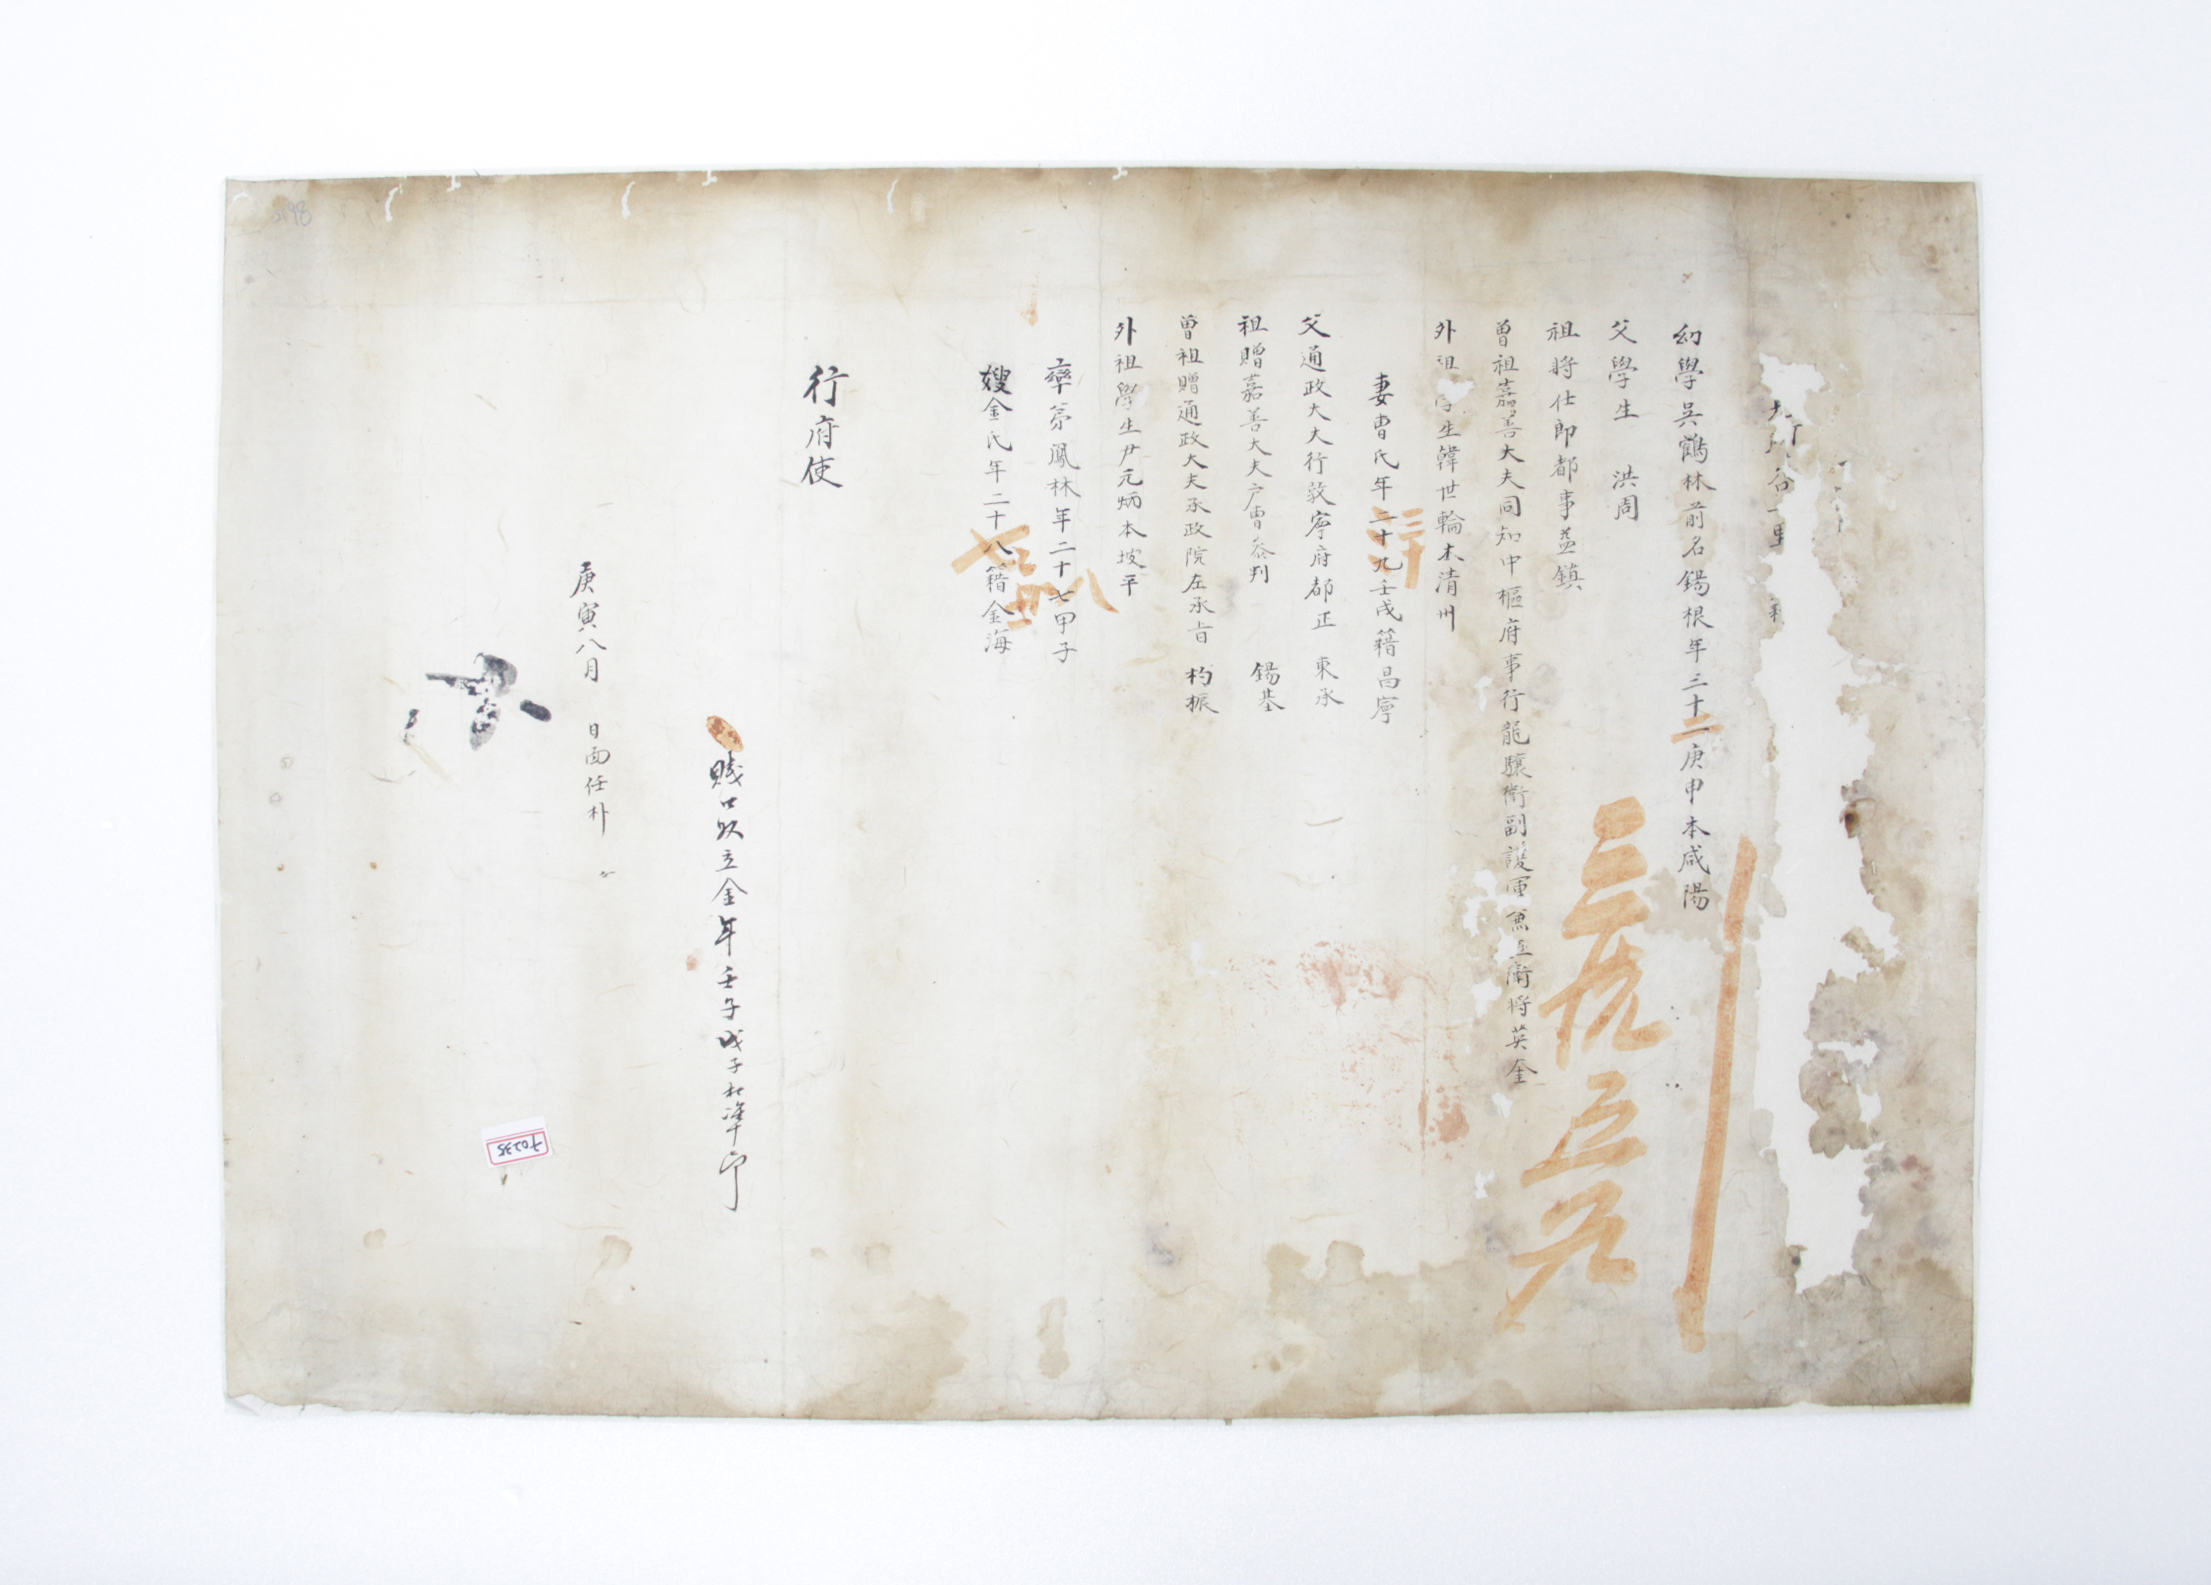 谷 里
幼學吳鶴林前名錫根年三十一庚申本咸陽
父學生 洪周
祖將仕郎都事益鎮
曾祖嘉善大夫同知中樞府事行龍驤衛副護軍兼五衛將英金
外祖學生韓世輪本清州
妻曺氏年二十九壬戌籍昌寧
父通政大夫行敦寧府都正 東承
祖贈嘉善大夫戶曹參判 錫基
曾祖贈通政大夫承政院左承旨 杓振
外祖學生尹元炳本坡平
率弟鳳林年二十七甲子
嫂金氏年二十八籍金海
行府使
賤口奴立金年壬子戊子相準印
庚寅八月 日面任朴
三統五戶